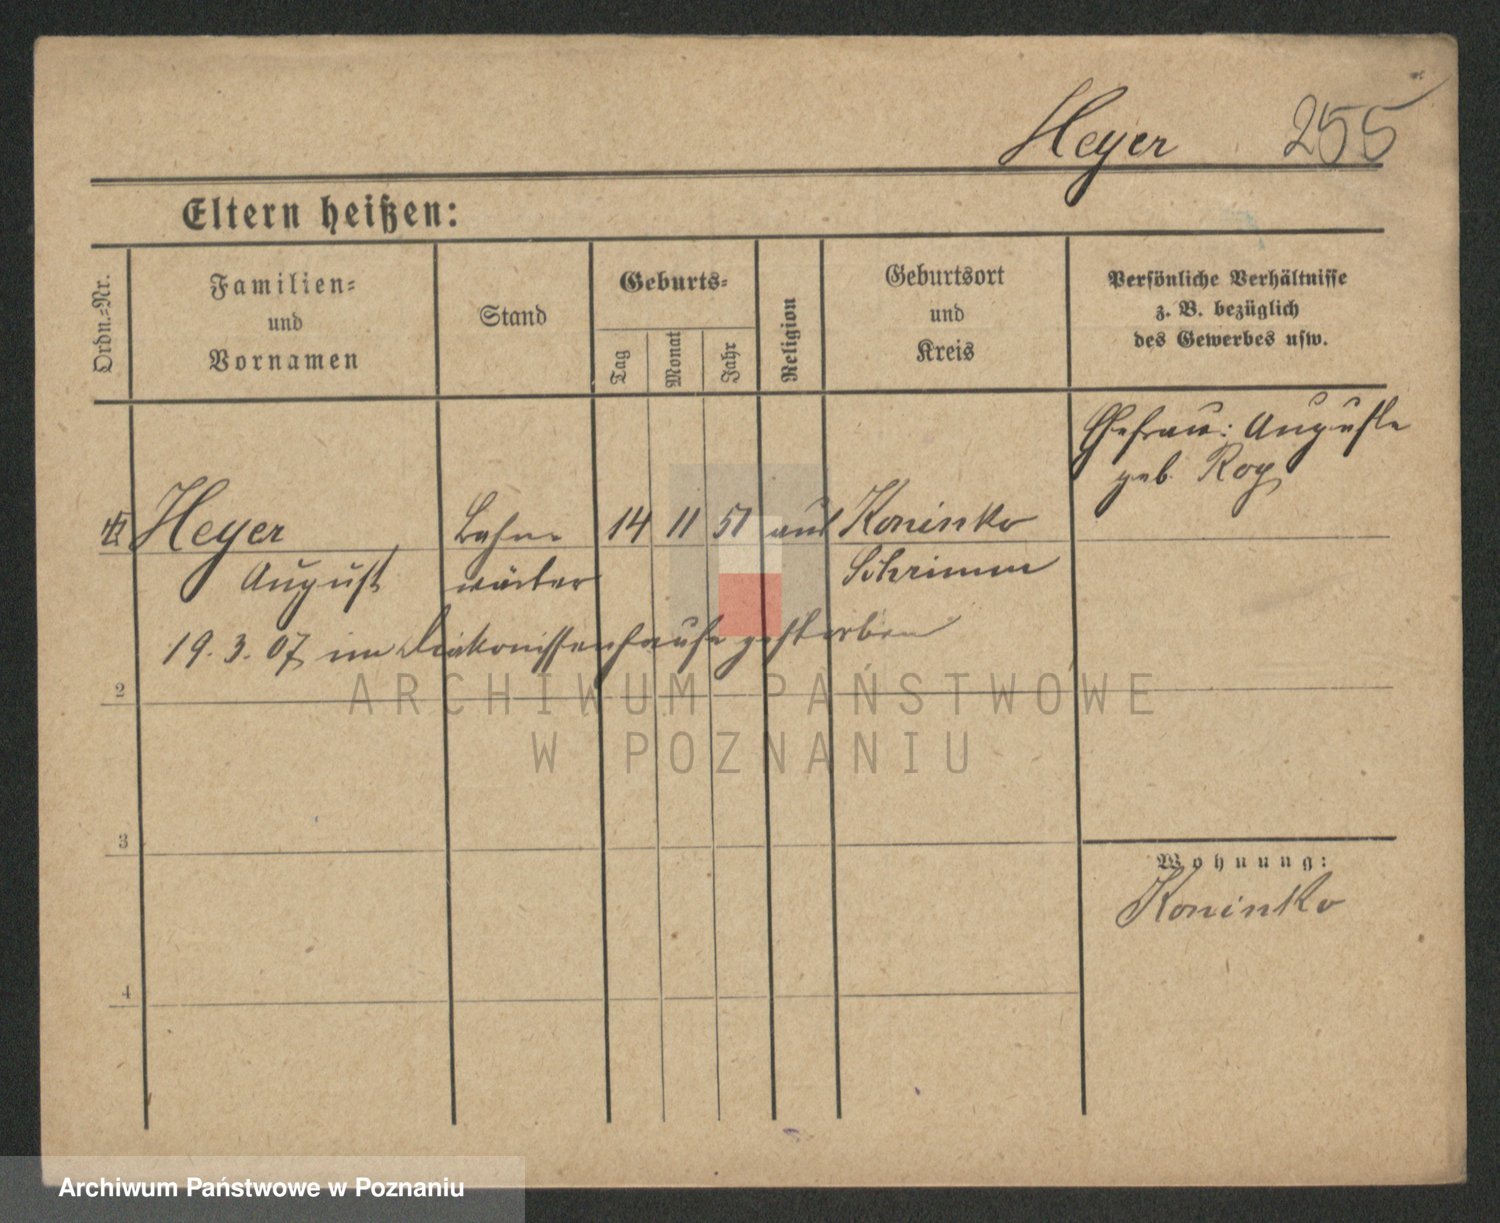 Heyer 255
Eltern heißen:
Ordn.-Nr.
Familien-
und
Vornamen
Stand
Geburts-
Tag
Monat
Jahr
Religion
Geburtsort
und
Kreis
Persönliche Verhältnisse
z. B. bezüglich
des Gewerbes usw.
Ehefrau: Auguste
geb. Roy
Heyer Bahn- 14 11 51 Koninko
August wärter Schrimm
19. 3. 07 im Diakonissenhause gestorben
2
ARCHIWUM PAŃSTWOWE
W POZNANIU
3
Wohnung:
Koninko
4
Archiwum Państwowe w Poznaniu